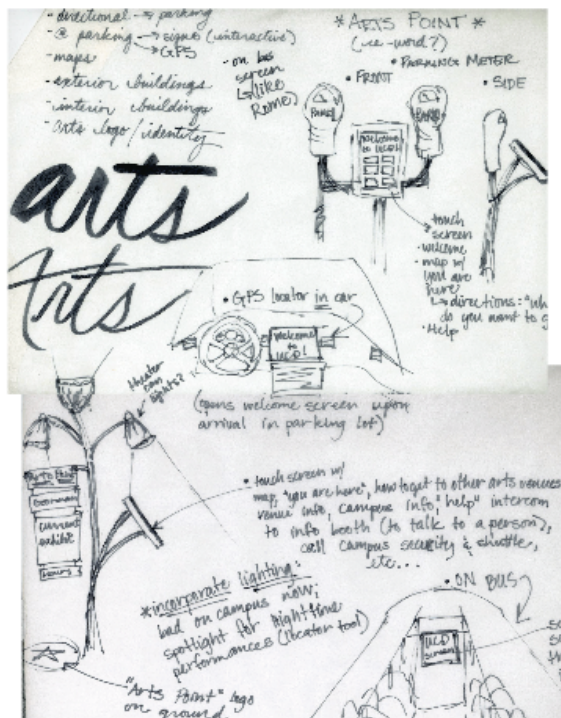 - directional → parking
- @ parking → signs (interactive)
→ GPS
- maps
- exterior buildings
- interior buildings
- arts logo / identity
- on bus
screen
(like
Rome)
*ARTS POINT*
• PARKING METER
• FRONT
• SIDE
PARK
PARK
Welcome
to UCD!
touch
screen
• welcome
• map w/
you are
here
↳ directions: "wh
do you want to g
• Help
arts
Arts
• GPS locator in car
Welcome
to
UCD!
(opens welcome screen upon
arrival in parking lot)
theater
can
lights?
Arts Point
current
exhibit
hours
• touch screen w/
map, "you are here", how to get to other arts venues
venue info, campus info, "help" intercom
to info booth (to talk to a person),
call campus security & shuttle,
etc...
*incorporate lighting:
bad on campus now;
spotlight for nighttime
performances (locator tool)
• ON BUS
UCD
screen
"Arts Point" logo
on ground